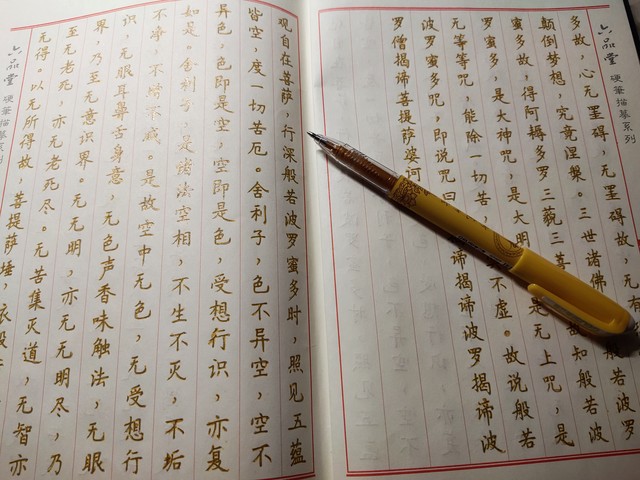 六品堂 硬筆描摹系列
观自在菩萨，行深般若波罗蜜多时，照见五蕴
皆空，度一切苦厄。舍利子，色不异空，空不
异色，色即是空，空即是色，受想行识，亦复
如是。舍利子，是诸法空相，不生不灭，不垢
不净，不增不减。是故空中无色，无受想行
识，无眼耳鼻舌身意，无色声香味触法，无眼
界，乃至无意识界。无无明，亦无无明尽，乃
至无老死，亦无老死尽。无苦集灭道，无智亦
无得。以无所得故，菩提萨埵，依
六品堂 硬筆描摹系列
多故，心无罣碍，无罣碍故，无有
颠倒梦想，究竟涅槃。三世诸佛 波罗
蜜多故，得阿耨多罗三藐三菩 故知般若波
罗蜜多，是大神咒，是大明 是无上咒，是
无等等咒，能除一切苦， 不虚。故说般若
波罗蜜多咒，即说咒曰 谛揭谛波罗揭谛波
罗僧揭谛菩提萨婆诃